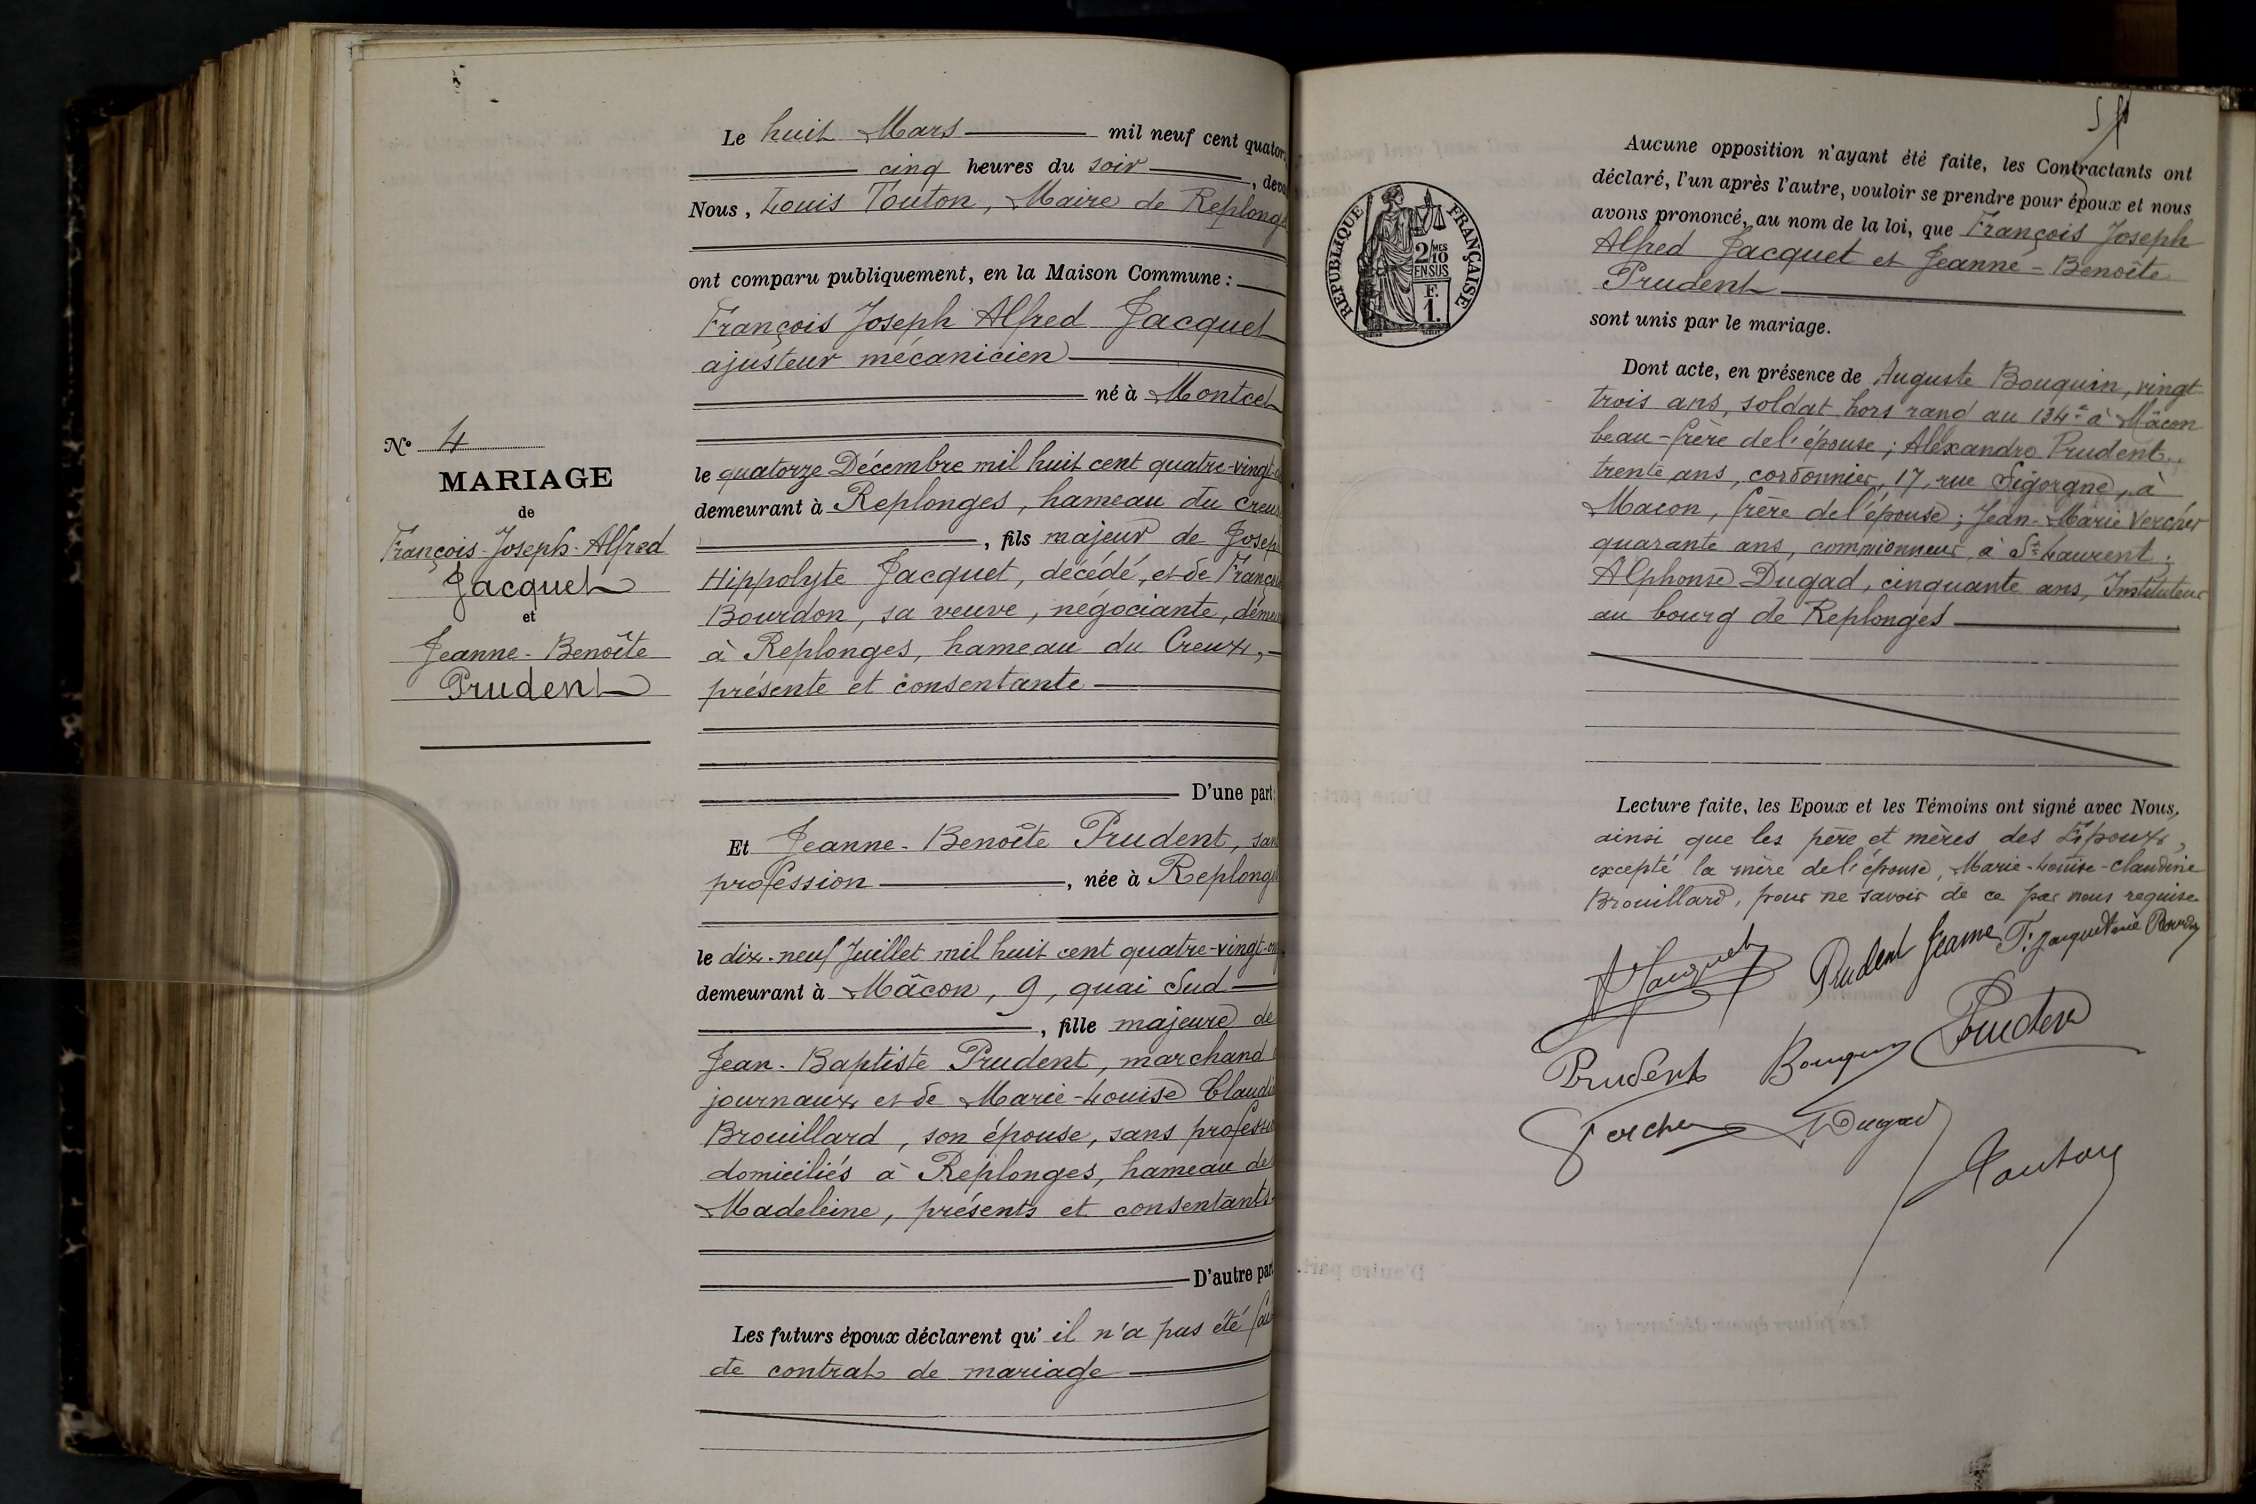 Le huit Mars mil neuf cent quator
cinq heures du soir, deva
Nous, Louis Touton, Maire de Replong
ont comparu publiquement, en la Maison Commune :
François Joseph Alfred Jacquet
ajusteur mécanicien
né à Montcet
N° 4
MARIAGE
de
François-Joseph-Alfred
Jacquet
et
Jeanne-Benoîte
Prudent
le quatorze Décembre mil huit cent quatre-vingt
demeurant à Replonges, hameau du Creu
, fils majeur de Josep
Hippolyte Jacquet, décédé, et de Franço
Bourdon, sa veuve, négociante, demeu
à Replonges, hameau du Creux,
présente et consentante
D'une part;
Et Jeanne-Benoîte Prudent, san
profession, née à Replong
le dix-neuf Juillet mil huit cent quatre-vingt-on
demeurant à Mâcon, 9, quai Sud
, fille majeure de
Jean-Baptiste Prudent, marchand
journaux et de Marie-Louise Claudi
Brouillard, son épouse, sans profess
domiciliés à Replonges, hameau de
Madeleine, présents et consentants
D'autre par
Les futurs époux déclarent qu' il n'a pas été fai
de contrat de mariage
RÉPUBLIQUE FRANÇAISE
2/10 MES
EN SUS
F.
1.
Aucune opposition n'ayant été faite, les Contractants ont
déclaré, l'un après l'autre, vouloir se prendre pour époux et nous
avons prononcé, au nom de la loi, que François Joseph
Alfred Jacquet et Jeanne-Benoîte
Prudent
sont unis par le mariage.
Dont acte, en présence de Auguste Bouquin, vingt
trois ans, soldat hors rand au 134e à Mâcon
beau-frère de l'épouse ; Alexandre Prudent,
trente ans, cordonnier, 17, rue Sigorgne, à
Macon, frère de l'épouse ; Jean-Marie Vercher
quarante ans, camionneur à St Laurent ;
Alphonse Dugad, cinquante ans, Instituteur
au bourg de Replonges
Lecture faite, les Epoux et les Témoins ont signé avec Nous,
ainsi que les père et mères des Epoux,
excepté la mère de l'épouse, Marie-Louise-Claudine
Brouillard, pour ne savoir de ce par nous requise
A Jacquet Prudent Jeanne F. Jacquet née Bourdon
Prudent Bouquin Prudent
Vercher Dugad
Touton